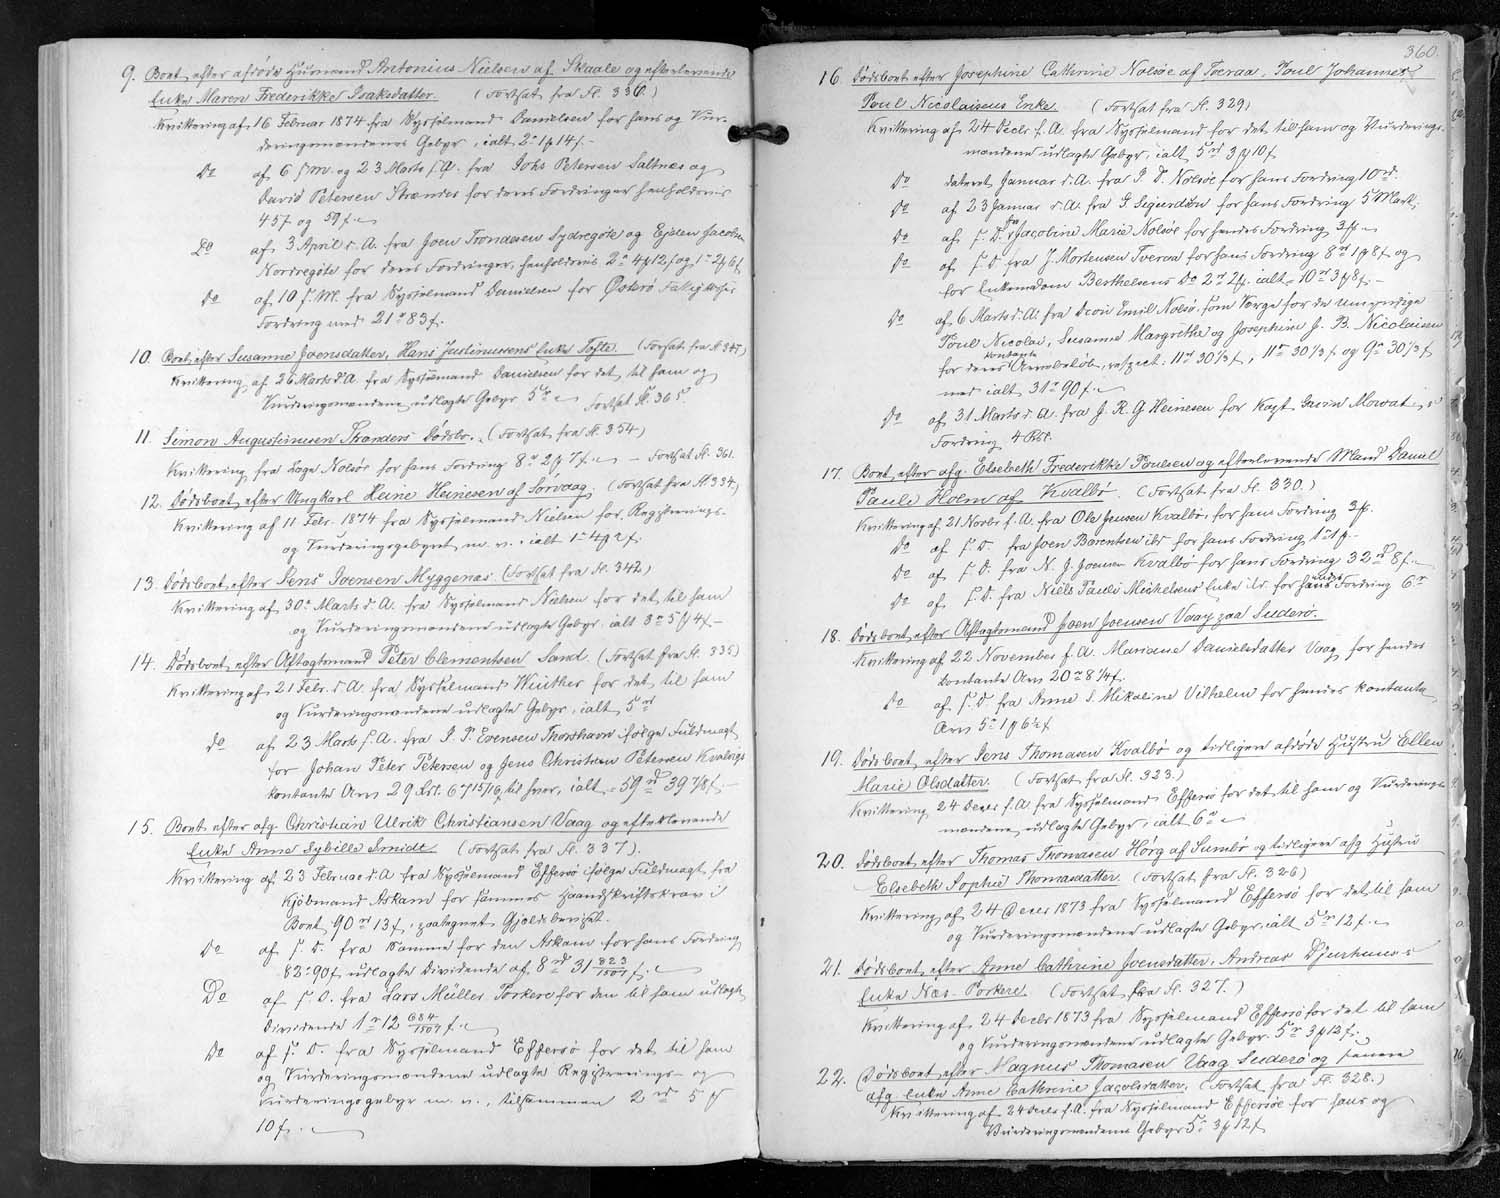 9. Boet efter afdøde Husmand Antonius Nielsen af Skaale og efterlevende
Enke Maren Frederikke Isaksdatter. (Fortsat fra Fl. 336.)
Kvittering af 16 Februar 1874 fra Sysselmand Danielsen for hans og Vur-
deringsmændenes Gebyr, ialt 2 rd 1 ß 14 f. -
Do af 6 s. M. og 23 Marts s. A. fra Johs Petersen Saltnæs og
David Petersen Strænder for deres Fordringer henholdsvis
45 f. og 59 f.
Do af 3 April d. A. fra Joen Trondesen Sydregøte og Ejden Jacobsen
Nordregøte for deres Fordringer, henholdsvis 2 rd 4 ß 12 f og 1 rd 2 ß 6 f
Do af 10 s. M. fra Sysselmand Danielsen for Østerø Fattigkasses
Fordring med 21 rd 83 f.
10. Boet efter Susanne Joensdatter, Hans Justinusens Enke Tofte. (Fortsat fra Fl. 347)
Kvittering af 26 Marts d. A. fra Sysselmand Danielsen for det til ham og
Vurderingsmændene udlagte Gebyr 5 rd Fortsat Fl. 365.
11. Simon Augustinusen Strænders Dødsbo. (Fortsat fra Fl. 354)
Kvittering fra Lage Nolsøe for hans Fordring 8 rd 2 ß 7 f. - Fortsat Fl. 361.
12. Dødsboet efter Ungkarl Heine Heinesen af Sørvaag. (Fortsat fra Fl. 334.)
Kvittering af 11 Febr. 1874 fra Sysselmand Nielsen for Registrerings-
og Vurderingsgebyret m. v. ialt 1 rd 4 ß 2 f.
13. Dødsboet efter Jens Joensen Myggenæs. (Fortsat fra Fl. 342)
Kvittering af 30 Marts d. A. fra Sysselmand Nielsen for det til ham
og Vurderingsmændene udlagte Gebyr, ialt 3 rd 5 ß 4 f. -
14. Dødsboet efter Aftægtsmand Peter Clementsen Sand. (Fortsat fra Fl. 335)
Kvittering af 21 Febr. d. A. fra Sysselmand Winther for det til ham
og Vurderingsmændene udlagte Gebyr, ialt 5 rd
Do af 23 Marts s. A. fra J. P. Evensen Thorshavn ifølge Fuldmagt
for Johan Peter Petersen og Jens Christian Petersen Kvalvigs
kontante Arv 29 Rdl. 67 15/16 til hver, ialt 59 rd 39 7/8 f. -
15. Boet efter afg. Christian Ulrik Christiansen Vaag og efterlevende
Enke Anne Sybille Smidt. (Fortsat fra Fl. 337).
Kvittering af 23 Februar d. A fra Sysselmand Effersø ifølge Fuldmagt fra
Kjøbmand Askam for sammes Haandskriftskrav i
Boet 90 rd 13 f., paategnet Gjeldsbeviset.
Do af s. D. fra Samme for den Askam for hans Fordring
82 rd 90 f udlagte Dividende af 8 rd 31 823/1507 f.
Do af s. D. fra Lars Müller Porkere for den til ham udlagte
Dividende 1 rd 12 684/1507 f.
Do af s. D. fra Sysselmand Effersø for det til ham
og Vurderingsmændene udlagte Registrerings- og
Vurderingsgebyr m. v., tilsammen 2 rd 5 ß
10 f.
360.
16. Dødsboet efter Josephine Cathrine Nolsøe af Tveraa, Poul Johannes
Poul Nicolaisens Enke. (Fortsat fra Fl. 329)
Kvittering af 24 Decbr f. A. fra Sysselmand for det til ham og Vurderings-
mændene udlagte Gebyr, ialt 5 rd 3 ß 10 f
Do dateret Januar d. A. fra J. D. Nolsøe for hans Fordring 10 rd.
Do af 23 Januar d. A. fra G. Sejerdson for hans Fordring 5 Mark.
Do af s. D. fra Jacobine Marie Nolsøe for hendes Fordring 3 ß
Do af s. D. fra J. Mortensen Tveraa for hans Fordring 8 rd 1 ß 8 f og
for Enkemdom Berthelsens Do 2 rd 2 ß, ialt 10 rd 3 ß 8 f. -
Do af 6 Marts d. A. fra Dion Emil Nolsø, som Værge for de umyndige
Poul Nicolai, Susanne Margrethe og Josephine J. B. Nicolaisen
for deres kontante Arvebeløb, respect. 11 rd 30 1/3 f, 11 rd 30 1/3 f og 9 rd 30 1/3 f
med ialt 31 rd 90 f.
Do af 31 Marts d. A. fra J. R. G Heinesen for Kapt Gavin Mowats
Fordring 4 Rdl.
17. Boet efter afg. Elsebeth Frederikke Poulsen og efterlevende Mand Daniel
Pauli Holm af Kvalbø. (Fortsat fra Fl. 330.)
Kvittering af 21 Novbr f. A. fra Ole Jensen Kvalbø, for hans Fordring 3 ß.
Do af s. D. fra Joen Barentsen ibd for hans Fordring 1 rd 1 ß -
Do af s. D. fra N. J. Joensen Kvalbø for hans Fordring 32 rd 8 f.
Do af s. D. fra Niels Pauli Michelsens Enke ibd. for hendes Fordring 6 rd
18. Dødsboet efter Aftægtsmand Joen Joensen Vaag paa Suderø.
Kvittering af 22 November f. A. Mariane Danielsdatter Vaag for hendes
kontante Arv 20 rd 8 1/4 f.
Do af s. D. fra Anne S. Mikaline Vilhelm for hendes kontante
Arv 5 rd 1 ß 6 1/2 f
19. Dødsboet efter Jens Thomasen Kvalbø og tidligere afdøde Hustru Ellen
Marie Olsdatter. (Fortsat fra Fl. 323.)
Kvittering 24 Decbr f. A. fra Sysselmand Effersø for det til ham og Vurderings-
mændene udlagte Gebyr, ialt 6 rd
20. Dødsboet efter Thomas Thomasen Hørg af Sumbø og tidligere afg Hustru
Elsebeth Sophie Thomasdatter. (Fortsat fra Fl. 326)
Kvittering af 24 Decbr 1873 fra Sysselmand Effersø for det til ham
og Vurderingsmændene udlagte Gebyr, ialt 5 rd 12 f.
21. Dødsboet efter Anne Cathrine Joensdatter, Andreas Djurhuus's
Enke Næs-Porkere. (Fortsat fra Fl. 327.)
Kvittering af 24 Decbr 1873 fra Sysselmand Effersø for det til ham
og Vurderingsmændene udlagte Gebyr 5 rd 3 ß 12 f.
22. Dødsboet efter Magnus Thomasen Vaag Suderø og senere
afg. Enke Anne Cathrine Jacobsdatter. (Fortsat fra Fl. 328.)
Kvittering af 24 Decbr f. A. fra Sysselmand Effersøe for hans og
Vurderingsmændenes Gebyr 5 rd 3 ß 12 f